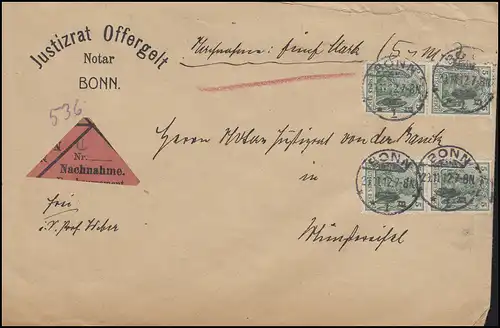 Justizrat Offergelt
Notar
BONN.
Nachnahme: Fünf Mark (5 M)
536
Nr.
Nachnahme.
Herrn Notar Justizrat von der
in
Münstereifel
frei
i.V.
BONN
BONN
BONN
5
5
5
5